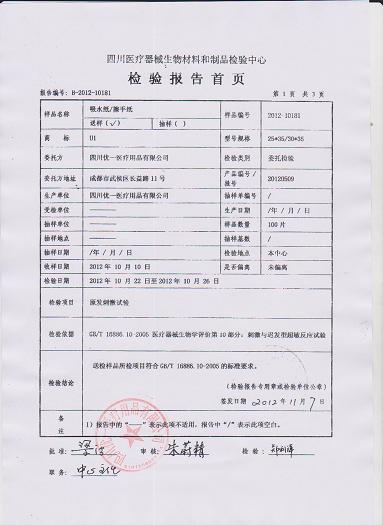 四川医疗器械生物材料和制品检验中心
检验报告首页
报告编号: B-2012-10181 第 1 页 共 3 页
样品名称 吸水纸/擦手纸 样品编号 2012-10181
送样(√) 抽样( )
商标 UI 型号规格 25*35/30*35
委托方 四川优一医疗用品有限公司 检验类别 委托检验
委托方地址 成都市武侯区长益路11号 产品编号/批号 20120509
生产单位 四川优一医疗用品有限公司 抽样单编号 /
受检单位 —— 生产日期 /年 / 月 / 日
抽样单位 —— 样品数量 100片
抽样地点 —— 抽样基数 /
抽样日期 /年 / 月 / 日 检验地点 本中心
收样日期 2012 年 10 月 10 日 是否偏离 未偏离
检验日期 2012 年 10 月 22 日至 2012 年 10 月 26 日
检验项目 原发刺激试验
检验依据 GB/T 16886.10-2005 医疗器械生物学评价第 10 部分: 刺激与迟发型超敏反应试验
检验结论 送检样品所检项目符合 GB/T 16886.10-2005 的标准要求。
(检验报告专用章或检验单位公章)
签发日期 2012 年 11 月 7 日
备注 1) 报告中的"——"表示此项不适用, 报告中"/"表示此项空白。
批准: 审核: 检验:
职务: 中心主任